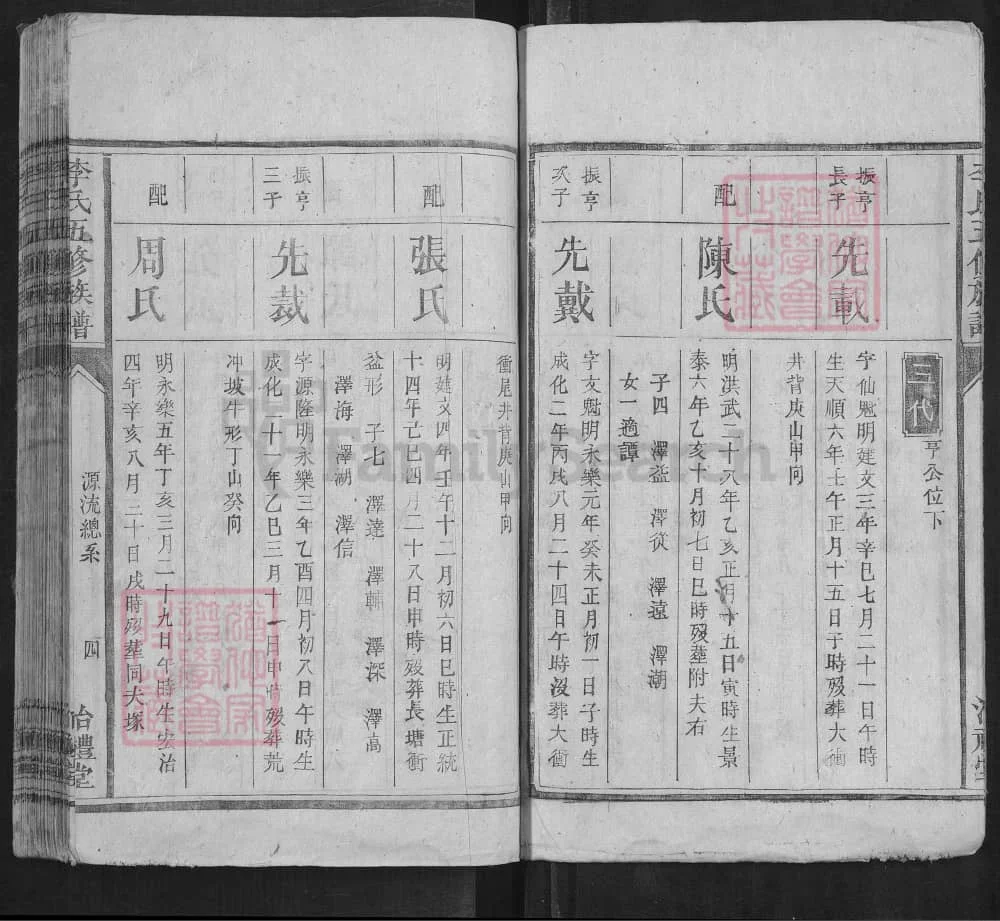 三代
亨公位下
振亨長子
先載
字仙魁明建文三年辛巳七月二十一日午時
生天順六年壬午正月十五日子時歿葬大衝
井背庚山甲向
配
陳氏
明洪武二十八年乙亥正月十五日寅時生景
泰六年乙亥十月初七日巳時歿葬附夫右
子四 澤益 澤從 澤遠 澤潮
女一適譚
振亨次子
先戴
字文魁明永樂元年癸未正月初一日子時生
成化二年丙戌八月二十四日午時沒葬大衝
衝尾井背庚山甲向
配
張氏
明建文四年壬午十二月初六日巳時生正統
十四年己巳四月二十八日申時歿葬長塘衝
益形 子七 澤達 澤輔 澤深 澤高
澤海 澤湖 澤信
振亨三子
先裁
字源隆明永樂三年乙酉四月初八日午時生
成化二十一年乙巳三月十一日申時歿葬荒
冲坡牛形丁山癸向
配
周氏
明永樂五年丁亥三月二十九日午時生宏治
四年辛亥八月二十日戌時歿葬同夫塚
李氏五修族譜
源流總系
四
怡禮堂